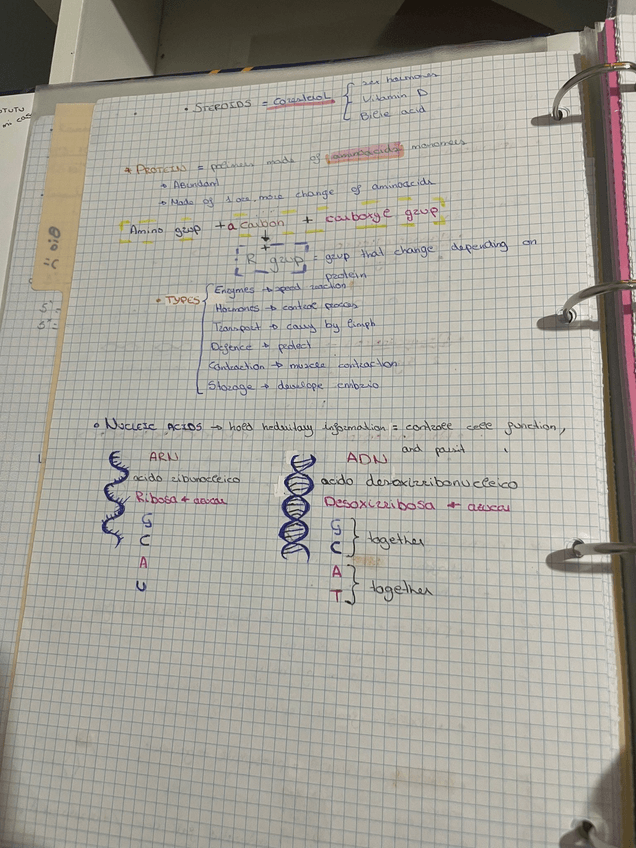 TUTU
• STEROIDS = COLESTEROL { sex hormones
Vitamin D
Bile acid
* PROTEIN = polimers made of aminoacids monomers
* Abundant
* Made of 1 or more change of aminoacids
Amino grup + a carbon + carboxyl grup
+
R grup = grup that change depending on
protein
Bio
• TYPES { Enzymes → speed reaction
Hormones → control process
Transport → carry by limph
Defence → protect
Contraction → muscle contraction
Storage → develope embrio
• NUCLEIC ACIDS → hold heduitary information = controll cell function,
and
ARN
ADN
acido ribonucleico
acido desoxirribonucleico
Ribosa + azucar
Desoxirribosa + azucar
G
C
A
U
G
C } together
A
T } together